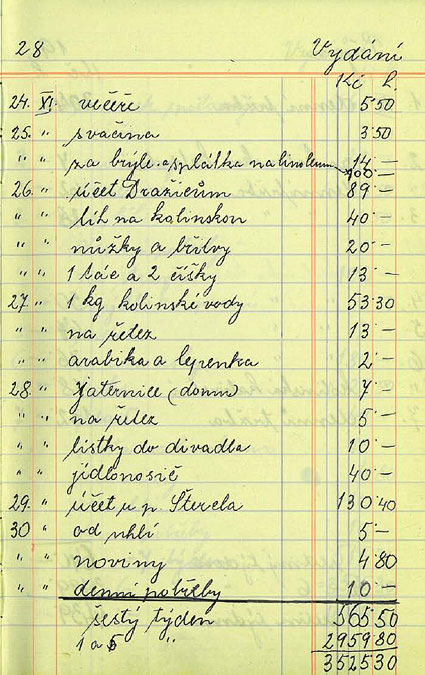 28 Vydání
Kč h.
24. XI. večeře 5·50
25. " svačina 3·50
" " za brýle a splátka na linoleum 14·—
100·—
26. " účet Dražicům 89·—
" " líh na kolinskou 40·—
" " nůžky a břitvy 20·—
" " 1 tác a 2 číšky 13·—
27. " 1 kg kolinské vody 53·30
" " na řetez 13·—
" " arabika a lepenka 2·—
28. " Jaternice (domů) 7·—
" " na řetez 5·—
" " lístky do divadla 10·—
" " jídlonosič 40·—
29. " účet u p. Štercla 130·40
30 " od uhlí 5·—
" " noviny 4·80
" " denní potřeby 10·—
šestý týden 565 50
1 a 5 " 2959 80
3525 30